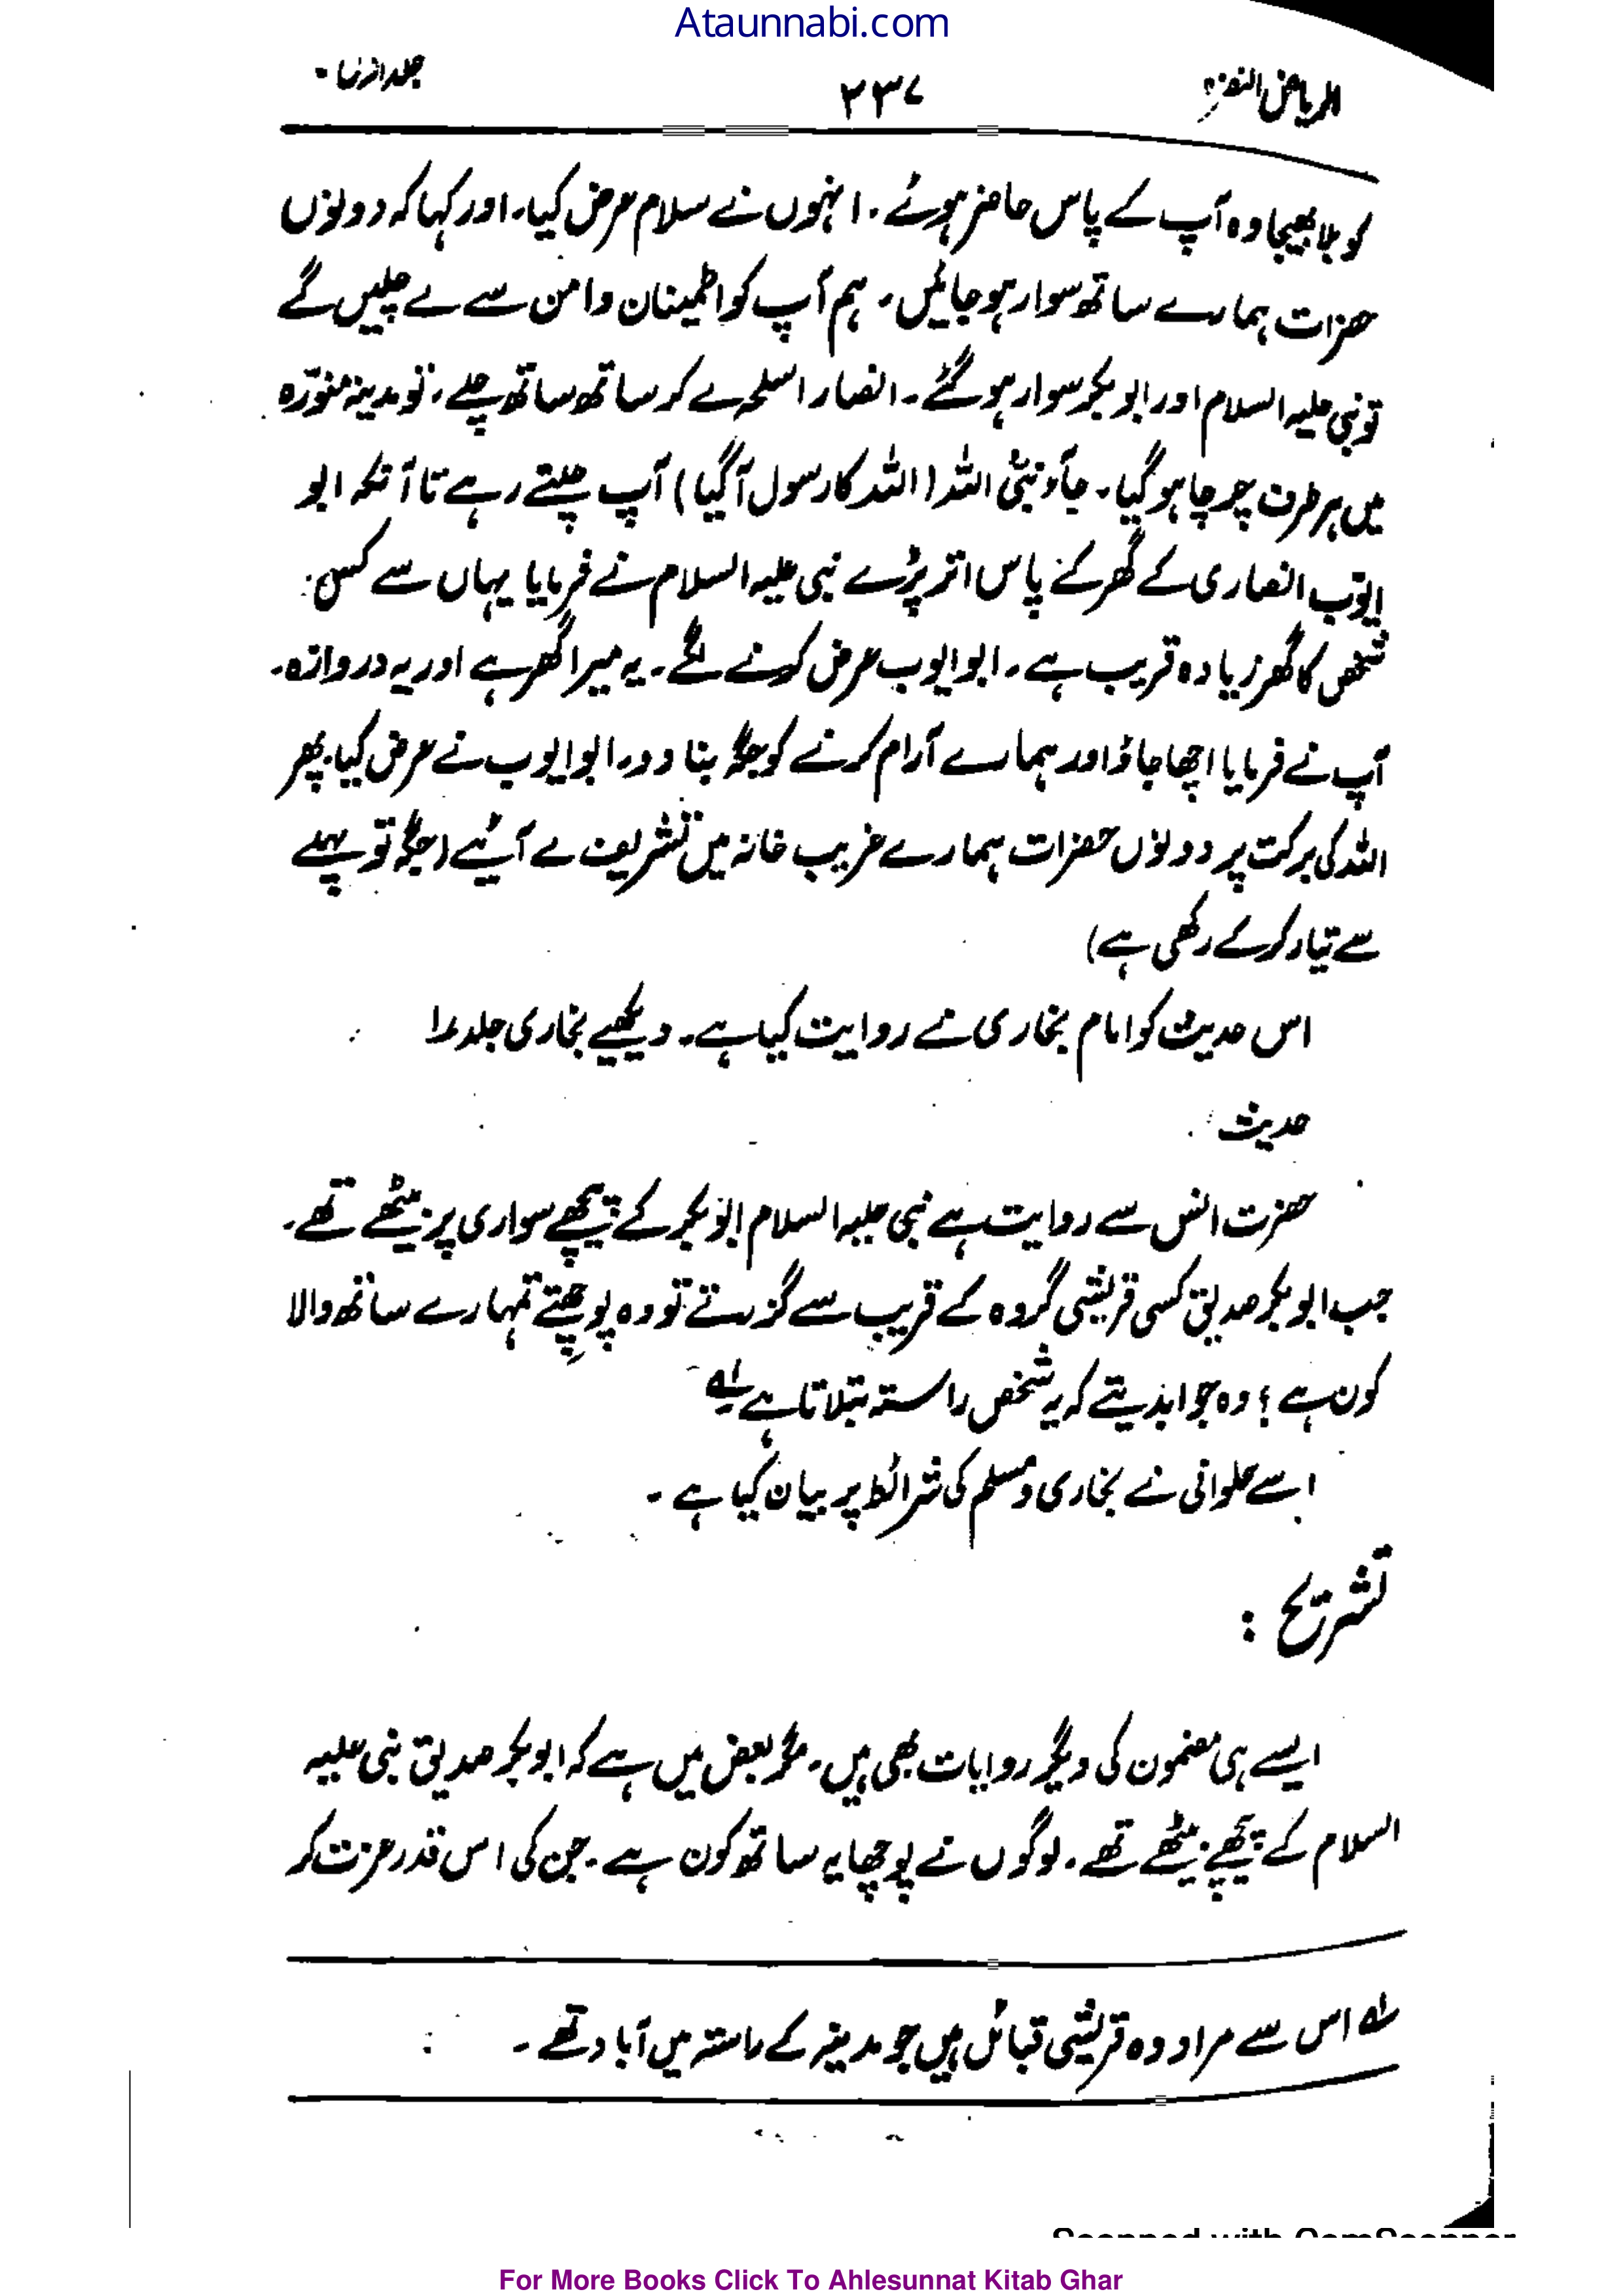 Ataunnabi.com
الریاض النضرہ ۲۳۷ جلد
کو بلا بھیجا وہ آپ کے پاس حاضر ہوئے۔ انہوں نے سلام عرض کیا۔ اور کہا کہ دونوں
حضرات ہمارے ساتھ سوار ہو جائیں۔ ہم آپ کو اطمینان وامن سے لے چلیں گے
تو نبی علیہ السلام اور ابوبکر سوار ہو گئے۔ انصار اسلحہ لے کر ساتھ ساتھ چلے، تو مدینہ منورّہ
میں ہر طرف چرچا ہو گیا۔ جآء نبیُّ اللہ (اللہ کا رسول آگیا) آپ چلتے رہے تا آنکہ ابو
ایوّب انصاری کے گھر کے پاس اتر پڑے نبی علیہ السلام نے فرمایا یہاں سے کس
شخص کا گھر زیادہ قریب ہے۔ ابوایوب عرض کرنے لگے۔ یہ میرا گھر ہے اور یہ دروازہ۔
آپ نے فرمایا اچھا جاؤ اور ہمارے آرام کرنے کو جگہ بنا دو۔ ابوایوب نے عرض کیا۔ پھر
اللہ کی برکت پر دونوں حضرات ہمارے غریب خانہ میں تشریف لے آئیے (جگہ تو پہلے
سے تیار کرکے رکھی ہے)
اس حدیث کو امام بخاری نے روایت کیا ہے۔ دیکھیے بخاری جلد ۱
حدیث
حضرت انس سے روایت ہے نبی علیہ السلام ابوبکر کے پیچھے سواری پر بیٹھے تھے۔
جب ابوبکر صدیق کسی قریشی گروہ کے قریب سے گزرتے تو وہ پوچھتے تمہارے ساتھ والا
کون ہے؟ وہ جواب دیتے کہ یہ شخص راستہ بتلاتا ہے لہ
اسے حلوانی نے بخاری ومسلم کی شرائط پر بیان کیا ہے۔
تشریح :
ایسے ہی مضمون کی دیگر روایات بھی ہیں۔ مگر بعض میں ہے کہ ابوبکر صدیق نبی علیہ
السلام کے پیچھے بیٹھے تھے۔ لوگوں نے پوچھا یہ ساتھ کون ہے۔ جن کی اس قدر عزت کر
لہ اس سے مراد وہ قریشی قبائل ہیں جو مدینہ کے راستہ میں آباد تھے۔
For More Books Click To Ahlesunnat Kitab Ghar